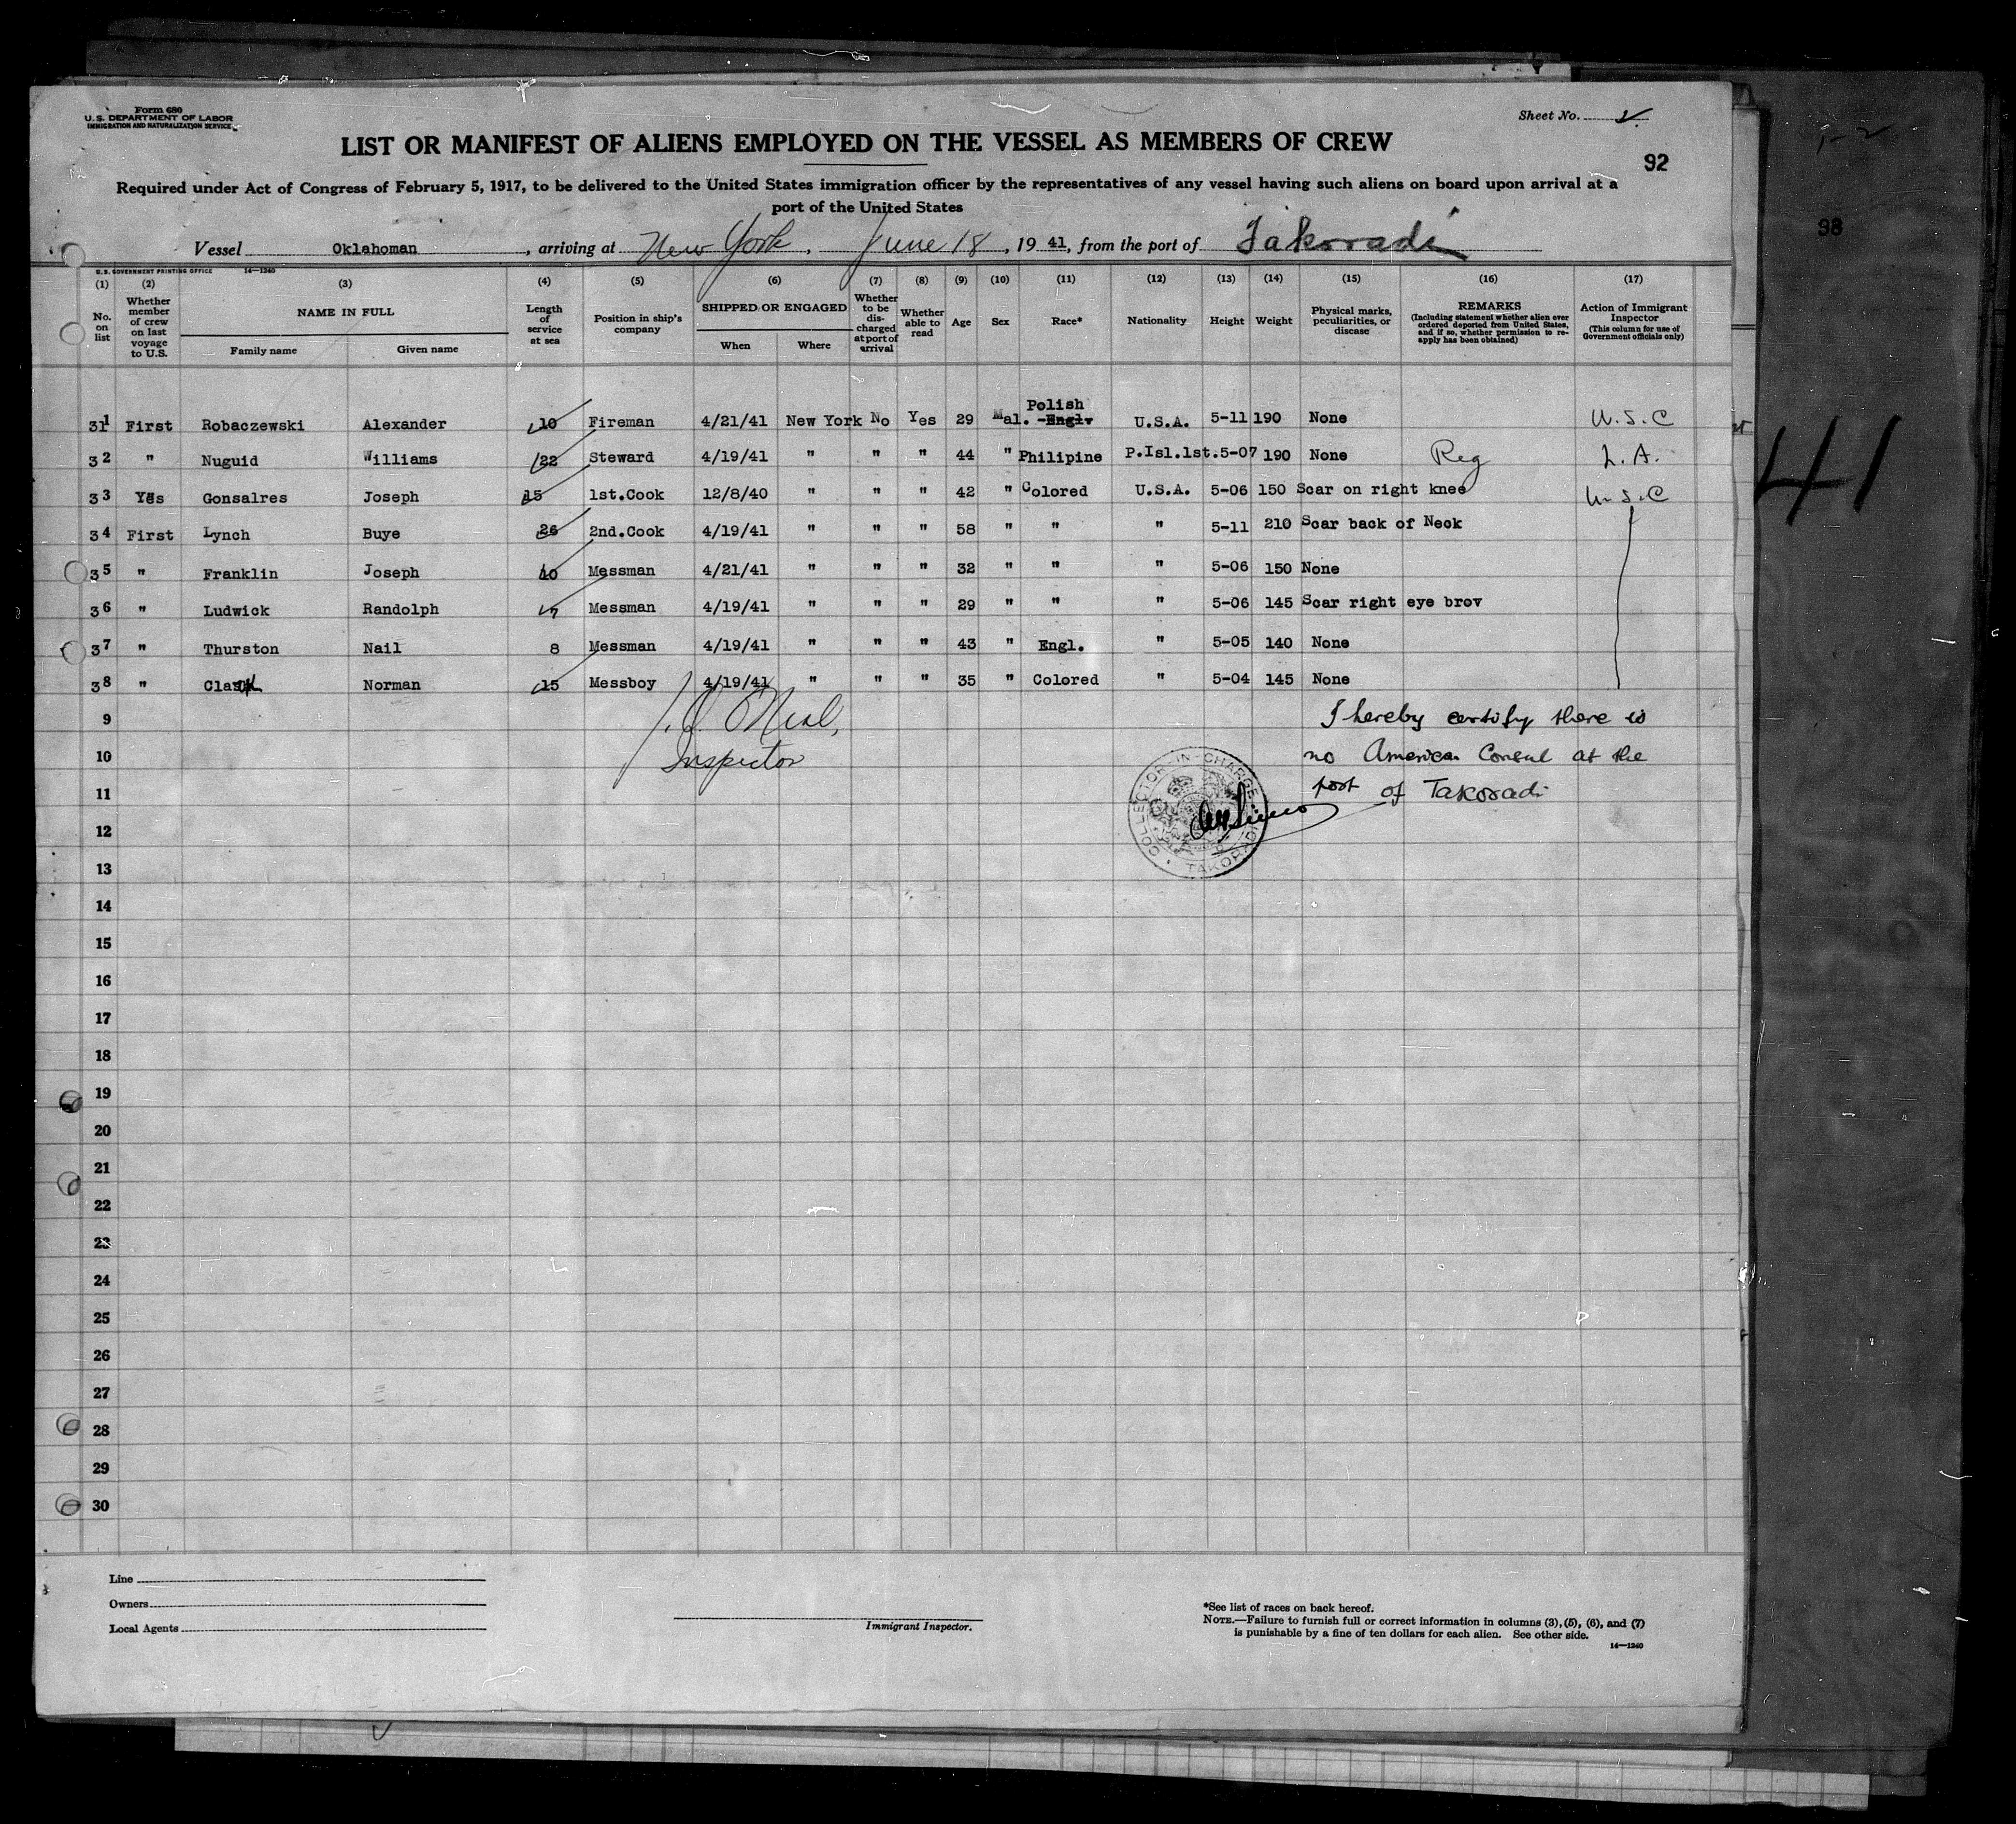 Form 680
U.S. DEPARTMENT OF LABOR
IMMIGRATION AND NATURALIZATION SERVICE
Sheet No.
LIST OR MANIFEST OF ALIENS EMPLOYED ON THE VESSEL AS MEMBERS OF CREW
92
Required under Act of Congress of February 5, 1917, to be delivered to the United States immigration officer by the representatives of any vessel having such aliens on board upon arrival at a
port of the United States
98
Vessel Oklahoman, arriving at New York, June 18, 1941, from the port of Takoradi
U.S. GOVERNMENT PRINTING OFFICE 14—1240
(1) No. on list
(2) Whether member of crew on last voyage to U.S.
(3) NAME IN FULL Family name Given name
(4) Length of service at sea
(5) Position in ship's company
(6) SHIPPED OR ENGAGED When Where
(7) Whether to be discharged at port of arrival
(8) Whether able to read
(9) Age
(10) Sex
(11) Race*
(12) Nationality
(13) Height
(14) Weight
(15) Physical marks, peculiarities, or disease
(16) REMARKS (Including statement whether alien ever ordered deported from United States, and if so, whether permission to re-apply has been obtained)
(17) Action of Immigrant Inspector (This column for use of Government officials only)
31 First Robaczewski Alexander 10 Fireman 4/21/41 New York No Yes 29 Mal. Polish Engl. U.S.A. 5-11 190 None U.S.C
32 " Nuguid Williams 22 Steward 4/19/41 " " " 44 " Philipine P.Isl.1st. 5-07 190 None Reg L.A.
33 Yes Gonsalres Joseph 15 1st.Cook 12/8/40 " " " 42 " Colored U.S.A. 5-06 150 Scar on right knee U.S.C
34 First Lynch Buye 26 2nd.Cook 4/19/41 " " " 58 " " " 5-11 210 Scar back of Neck
35 " Franklin Joseph 10 Messman 4/21/41 " " " 32 " " " 5-06 150 None
36 " Ludwick Randolph 7 Messman 4/19/41 " " " 29 " " " 5-06 145 Scar right eye brov
37 " Thurston Nail 8 Messman 4/19/41 " " " 43 " Engl. " 5-05 140 None
38 " Clack Norman 15 Messboy 4/19/41 " " " 35 " Colored " 5-04 145 None
41
O'Neal,
Inspector
I hereby certify there is
no American Consul at the
port of Takoradi
COLLECTOR-IN-CHARGE
TAKORADI
9
10
11
12
13
14
15
16
17
18
19
20
21
22
23
24
25
26
27
28
29
30
Line
Owners
Local Agents
Immigrant Inspector.
*See list of races on back hereof.
NOTE.—Failure to furnish full or correct information in columns (3), (5), (6), and (7)
is punishable by a fine of ten dollars for each alien. See other side.
14—1240